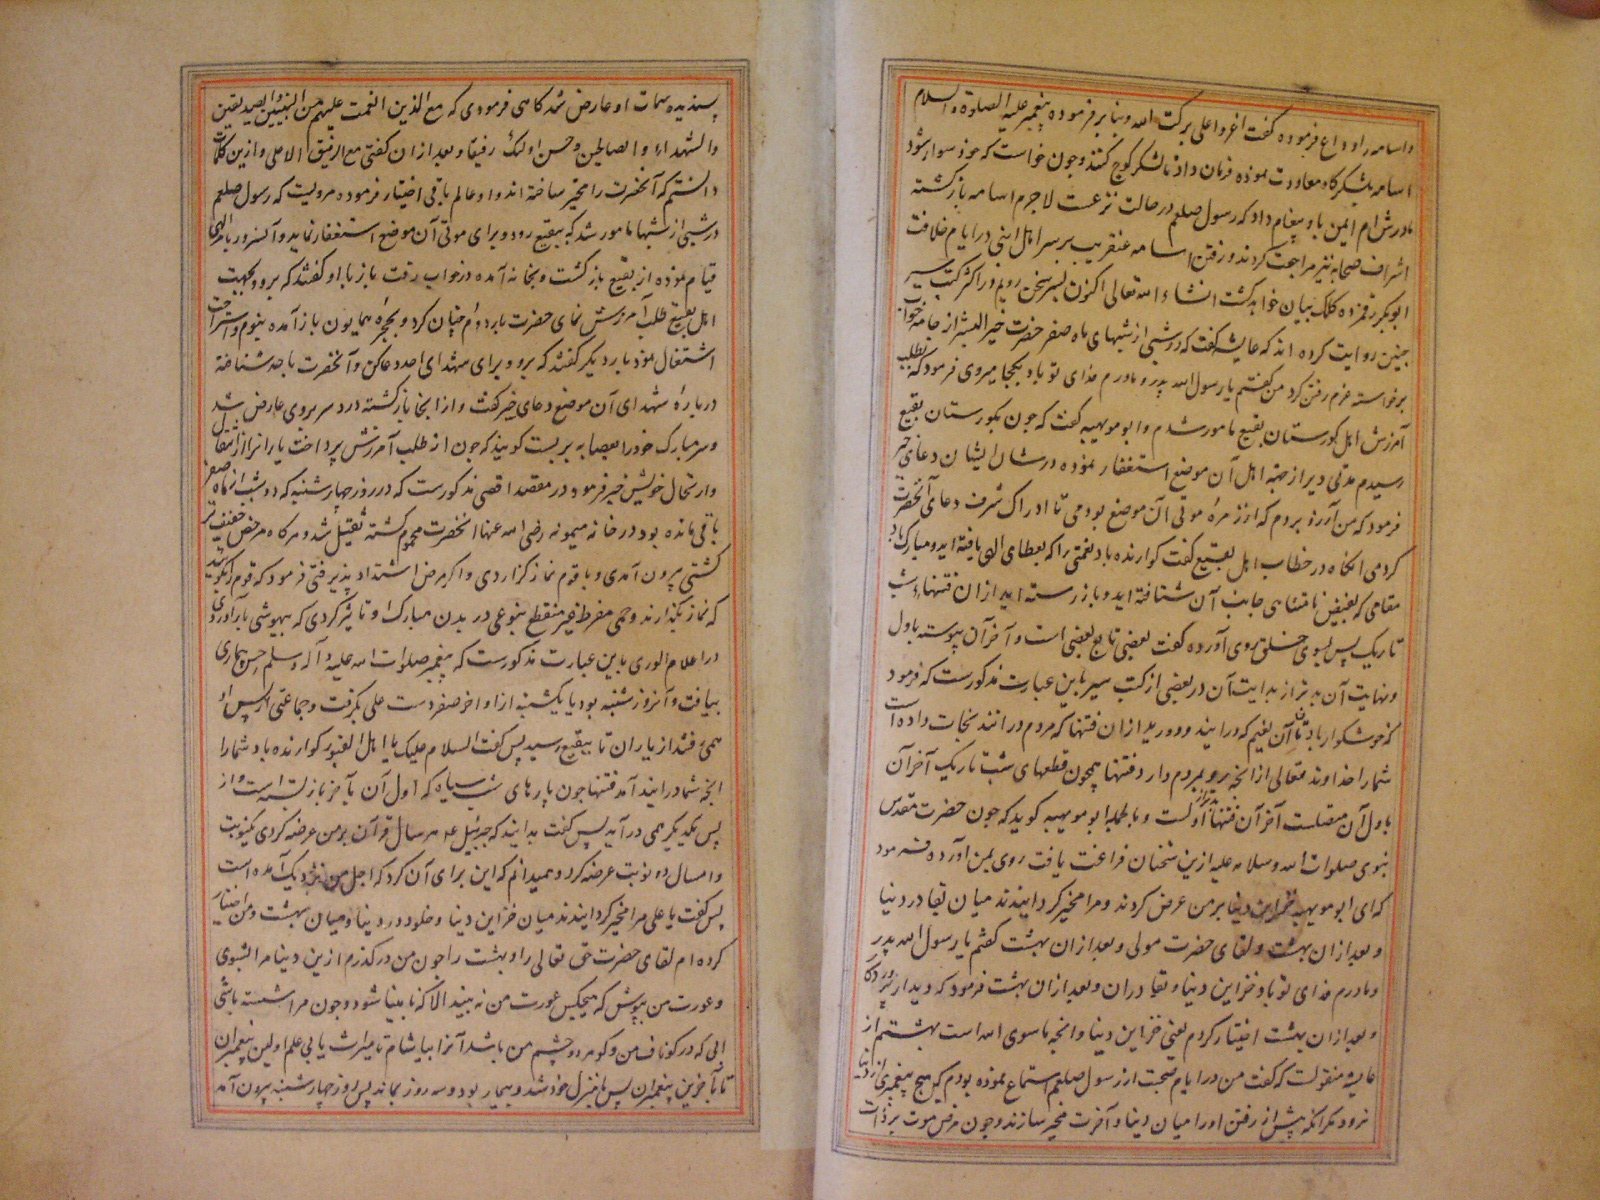 و اسامه را وداع فرموده گفت اغزوا علی برکت الله و بنا بر فرموده پیغمبر علیه الصلوة و السلام
اسامه بلشکرگاه معاودت نموده فرمان داد تا لشکر کوچ کنند و چون خواست که خود سوار شود
مادرش ام ایمن باو پیغام داد که رسول صلعم در حالت نزعست لاجرم اسامه بازگشته
اشراف صحابه نیز مراجعت کردند و رفتن اسامه عنقریب بر سر اهل ابنی در ایام خلافت
ابوبکر رقمزده کلک بیان خواهد گشت انشاء الله تعالی اکنون بسر سخن رویم در اکثر کتب سیر
چنین روایت کرده اند که عایشه گفت که در شبی از شبهای ماه صفر حضرت خیر البشر از جامه خواب
برخواسته عزم رفتن کرد من گفتم یا رسول الله پدر و مادرم فدای تو باد بکجا میروی فرمود که بطلب
آمرزش اهل گورستان بقیع مامور شدم و ابو مویهبه گفت که چون بگورستان بقیع
رسیدم مدتی دیر از جهة اهل آن موضع استغفار نموده در شان ایشان دعای خیر
فرمود که من آرزو بردم که از زمرهٔ موتی آن موضع بودمی تا ادراک شرف دعای آنحضرت
کردمی انگاه در خطاب اهل بقیع گفت گوارنده باد نعمتی را که بعطای الهی یافته اید و مبارک باد
مقامی که بفیض نامتناهی جانب آن شتافته اید و باز رسته اید از ان فتنهاء شب
تاریک پس بسوی خلق روی آورده گفت بعضی تابع بعضی است و آخر آن پیوسته باول
و نهایت آن بدتر از بدایت آن در بعضی از کتب سیر باین عبارت مذکورست که فرمود
که خوشگوار باد تان آن نعیم که در ایند و دورید از ان فتنها که مردم درانند نجات داده است
شما را خداوند متعالی از انچه رو بمردم دارد فتنها همچون قطعهای شب تاریک آخر آن
باول آن متصلست آخر آن فتنها بدتر از اولست و بالجمله ابو مویهبه گوید که چون حضرت مقدس
نبوی صلوات الله و سلامه علیه ازین سخنان فراغت یافت روی بمن آورده فرمود
که ای ابو مویهبه خزاین دنیا بر من عرض کردند و مرا مخیر گردانیدند میان بقا در دنیا
و بعد از ان بهشت و لقای حضرت مولی و بعد از ان بهشت گفتم یا رسول الله پدر
و مادرم فدای تو باد خزاین دنیا و بقا در ان و بعد از ان بهشت فرمود که دیدار پروردگار
و بعد از ان بهشت اختیار کردم یعنی خزاین دنیا و انچه ماسوی الله است بهشتم از
عایشه منقولست که گفت من در ایام صحت از رسول صلعم استماع نموده بودم که هیچ پیغمبری از دنیا
نرود مگر انکه پیش از رفتن او را میان دنیا و آخرت مخیر سازند و چون مرض موت بر ذات
پسندیده سمات او عارض شد گاهی فرمودی که مع الذین انعمت علیهم من النبیین و الصدیقین
والشهداء والصالحین و حسن اولئک رفیقا و بعد از ان گفتی مع الرفیق الاعلی و ازین کلمات
دانستم که آنحضرت را مخیر ساخته اند و او عالم باقی اختیار فرموده مرویست که رسول صلعم
در شبی از شبها مامور شد که ببقیع رود و برای موتی آن موضع استغفار نماید و آنسرور بامر الهی
قیام نموده از بقیع بازگشت و بخانه آمده در خواب رفت باز با او گفتند که برو و بجهت
اهل بقیع طلب آمرزش نمای حضرت بار دوم چنان کرد و بحجرهٔ همایون باز آمده بنوم و استراحت
اشتغال نمود بار دیگر گفتند که برو و برای شهدای احد دعا کن و آنحضرت باحد شتافته
دربارهٔ شهدای آن موضع دعای خیر گفت و از انجا بازگشته درد سر بروی عارض شد
و سر مبارک خود را بعصابه بر بست گویند که چون از طلب آمرزش پرداخت یارانرا از انتقال
و ارتحال خویش خبر فرمود در مقصد اقصی مذکورست که در روز چهارشنبه که دو شب از ماه صفر
باقی مانده بود در خانه میمونه رضی الله عنها آنحضرت محموم گشته ثقیل شد و هرگاه مرض خفیف تر
گشتی بیرون آمدی و با قوم نماز گزاردی و اگر مرض اشتداد پذیرفتی فرمود که قوم را بگویند
که نماز بگذارند و حمی مفرط غیر منقطع بنوعی در بدن مبارک او تاثیر کردی که بیهوشی بار آوردی
در اعلام الوری باین عبارت مذکورست که پیغمبر صلوات الله علیه و آله و سلم احس بیماری
بیافت و آنروز شنبه بود یا یکشنبه از اواخر صفر دست علی بگرفت و جماعتی از پس او
همی رفتند از یاران تا ببقیع رسید پس گفت السلام علیک یا اهل القبور گوارنده باد شما را
انچه شما در ایند آمد فتنها چون پارهای شب سیاه که اول آن بآخر باز بسته است و از
پس یکدیگر همی در آید پس گفت بدانید که جبرئیل ع هر سال قرآن بر من عرضه کردی یکنوبت
و امسال دو نوبت عرضه کرد و نمیدانم که این برای آن کرد که اجل من نزدیک آمده است
پس گفت یا علی مرا مخیر گردانیدند میان خزاین دنیا و خلود در دنیا و میان بهشت و من اختیار
کرده ام لقای حضرت حق تعالی را و بهشت را چون من درگذرم ازین دنیا مرا بشوی
و عورت من بپوش که هیچکس عورت من نه بیند الا که نابینا شود و چون مرا شسته باشی
آبی که در گو ناف من و گو هر دو چشم من باشد آنرا بیاشام تا میراث یابی علم اولین پیغمبران
تا بآخرین پیغمبران پس بمنزل خود شد و بیمار بود و سه روز بماند پس روز چهارشنبه بیرون آمد